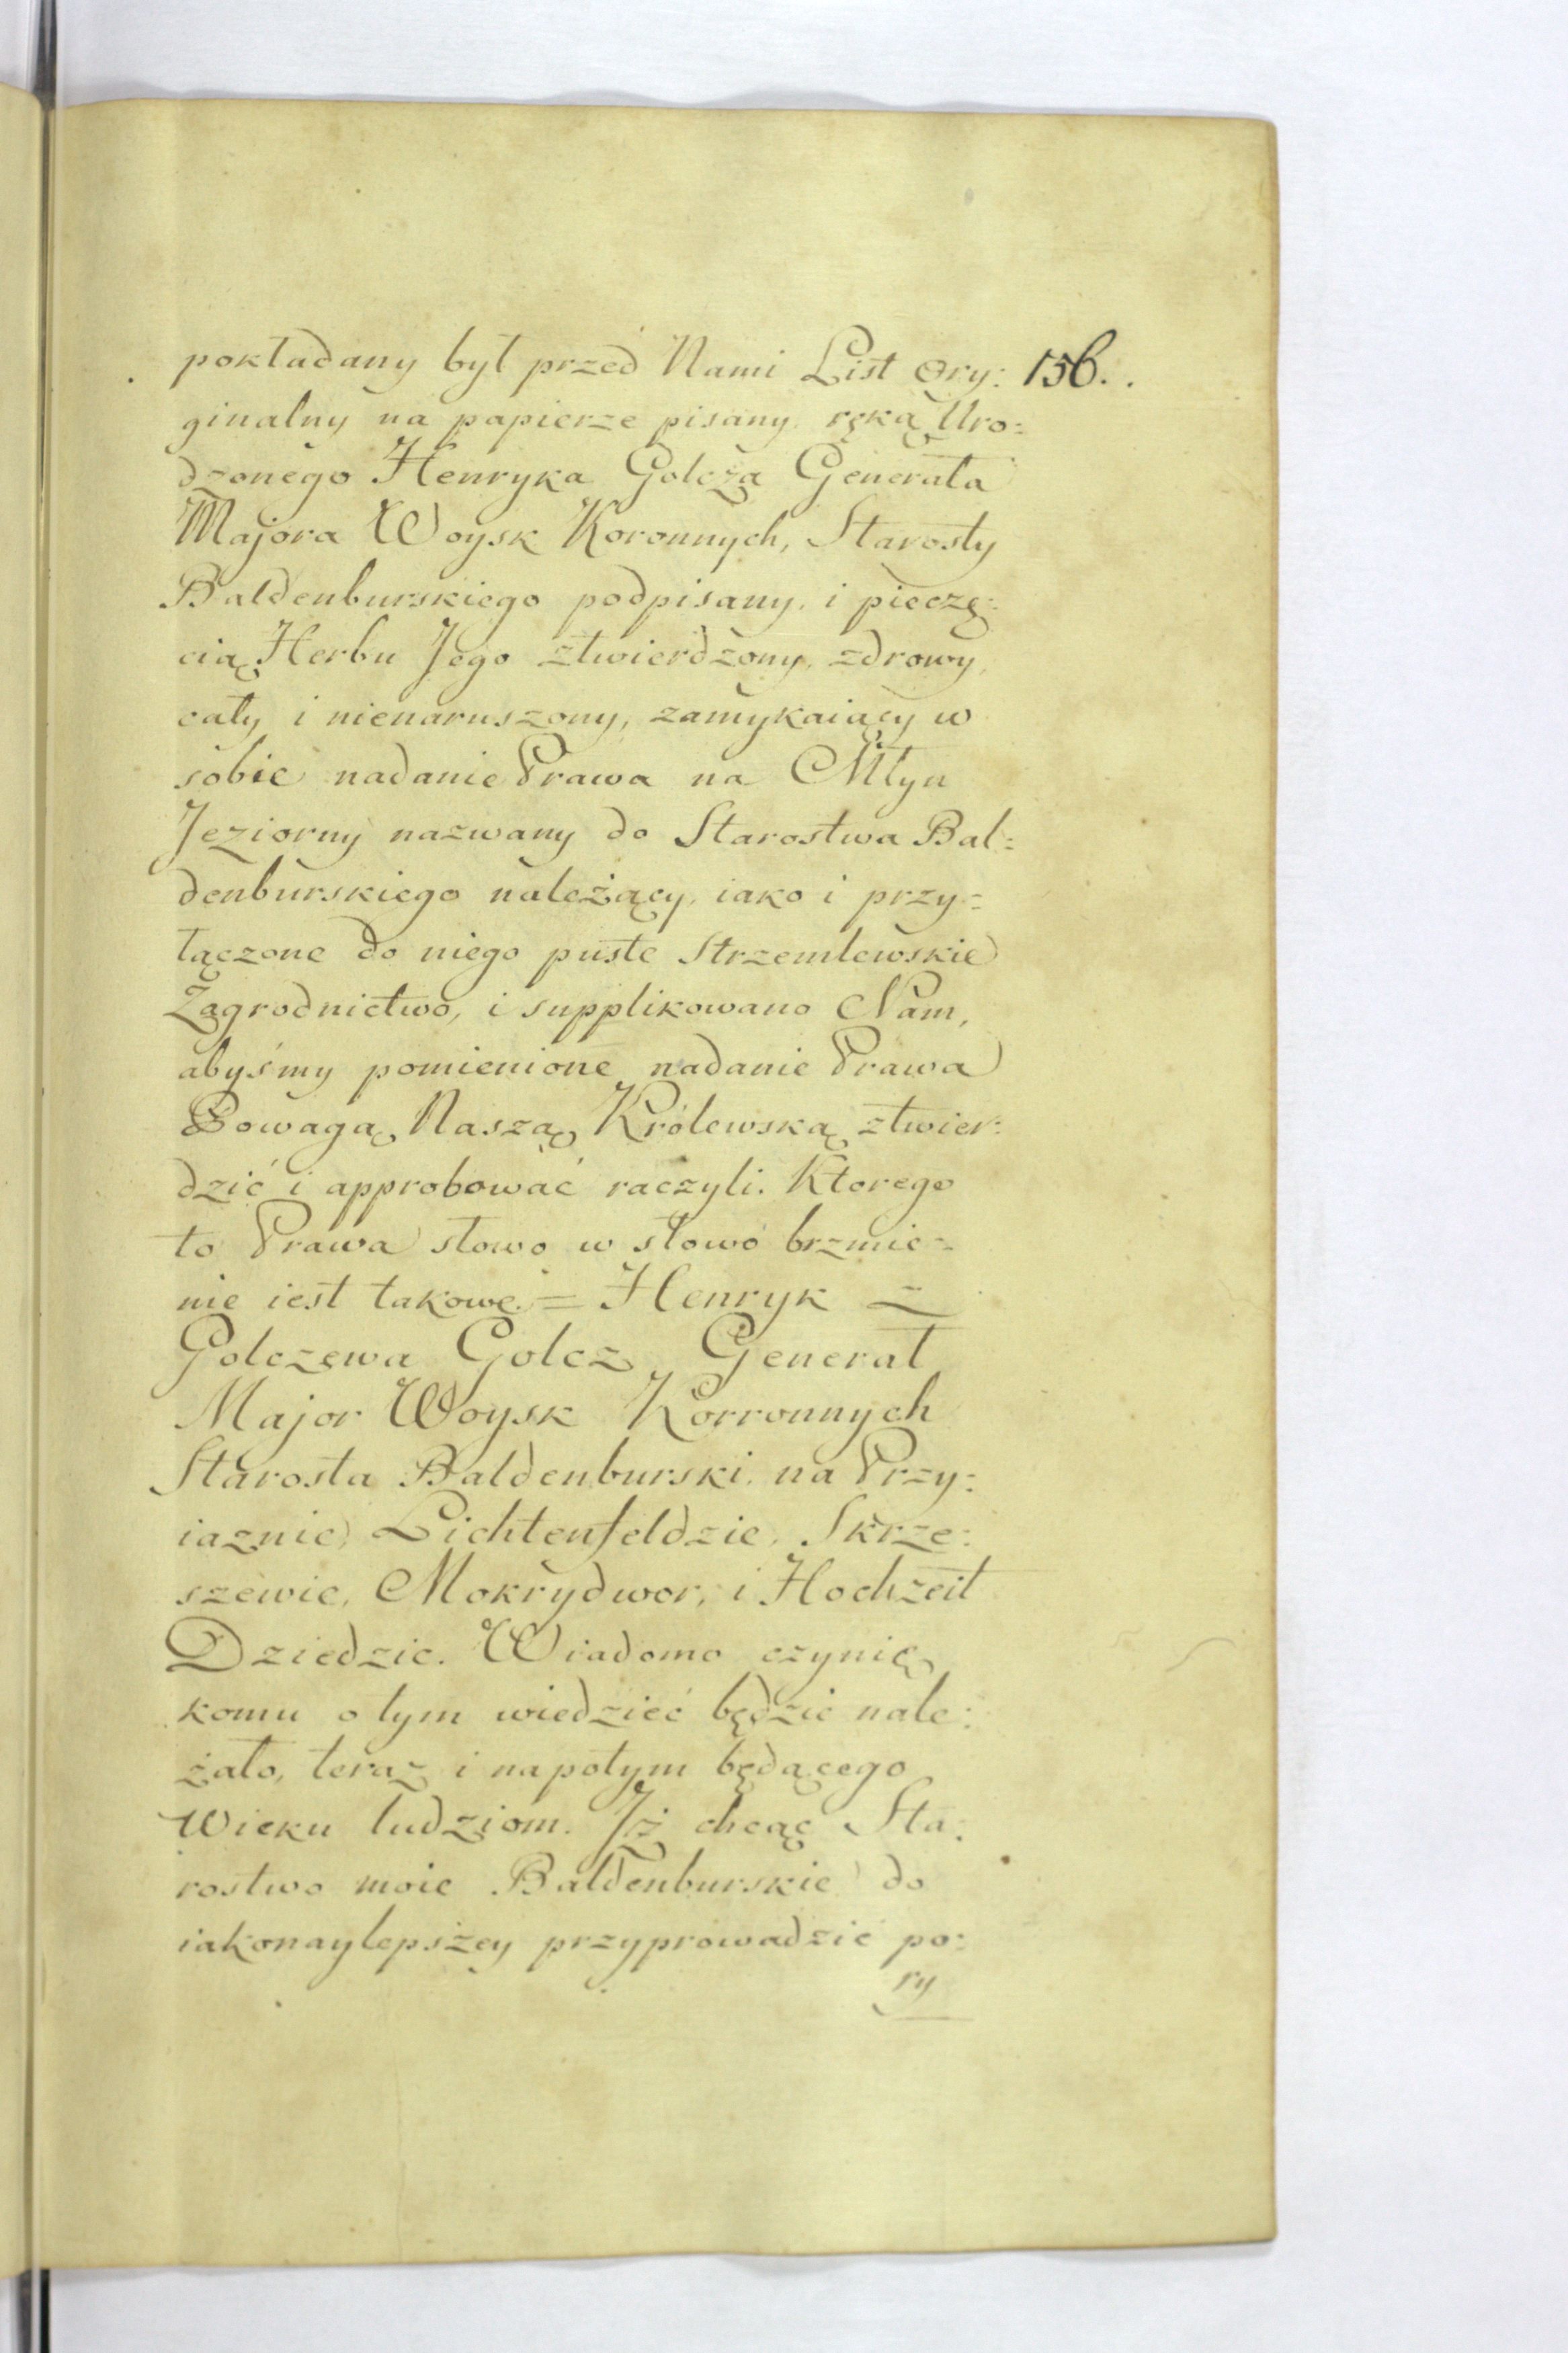 pokładany był przed Nami List Ory: 156.
ginalny na papierze pisany, ręką Uro=
dzonego Henryka Golcza Generała
Majora Woysk Koronnych, Starosty
Baldenburskiego podpisany, i pieczę=
cią Herbu Jego ztwierdzony, zdrowy,
cały i nienaruszony, zamykaiący w
sobie nadanie Prawa na Młyn
Jeziorny nazwany do Starostwa Bal=
denburskiego należący, iako i przy=
łączone do niego puste Strzemlewskie
Zagrodnictwo, i supplikowano Nam,
abyśmy pomienione nadanie Prawa
Powagą Naszą Królewską ztwier=
dzić i approbować raczyli. Ktorego
to Prawa słowo w słowo brzmie=
nie iest takowe. = Henryk z
Golczewa Golcz, Generał
Major Woysk Korronnych
Starosta Baldenburski, na Przy=
iaznie, Lichtenfeldzie, Skrze=
szewie, Mokrydwor, i Hochzeit
Dziedzic. Wiadomo czynię,
komu o tym wiedzieć będzie nale=
żało, teraz i napotym będącego
Wieku ludziom. Iż chcąc Sta=
rostwo moie Baldenburskie do
iakonaylepszey przyprowadzić po=
ry